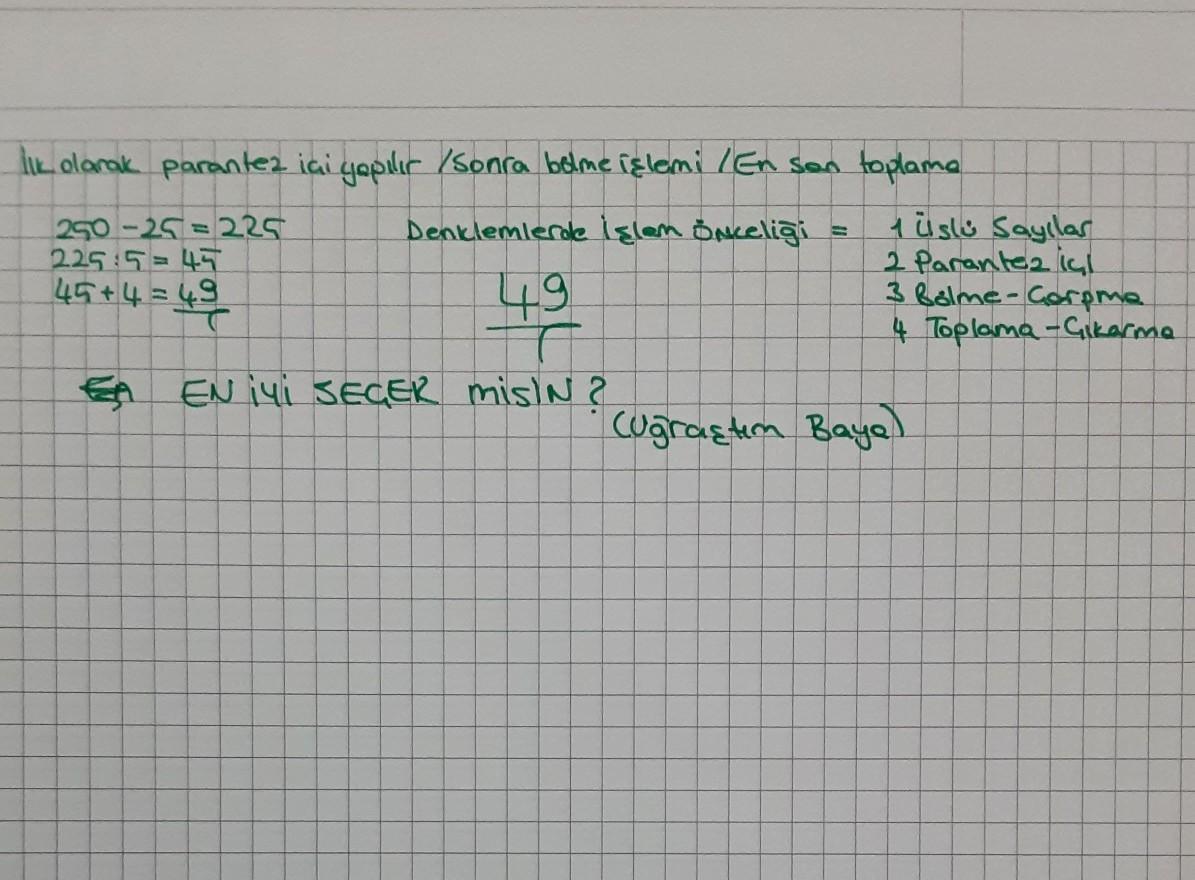 İlk olarak parantez içi yapılır / Sonra bölme işlemi / En son toplama
250 - 25 = 225
225 : 5 = 45
45 + 4 = 49
Denklemlerde İşlem Önceliği = 1 Üslü Sayılar
2 Parantez içi
3 Bölme - Çarpma
4 Toplama - Çıkarma
49
EN iyi SEÇER misiN ?
(Uğraştım Baya)